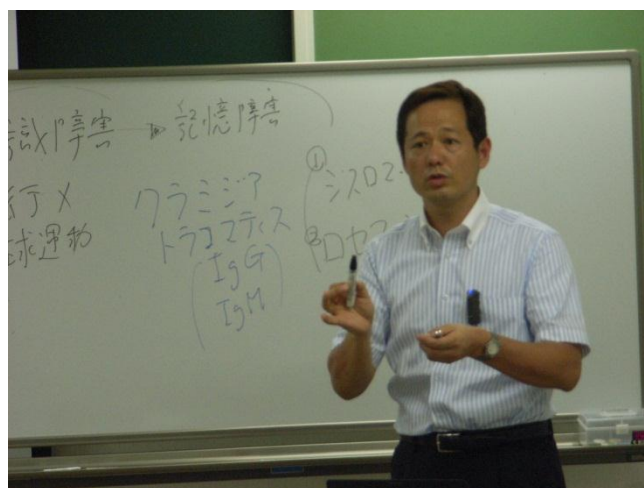 識障害 → 記憶障害
行 ×
球運動
クラミジア
トラコマティス
(IgG
IgM)
① ジスロマ
② ロセフ